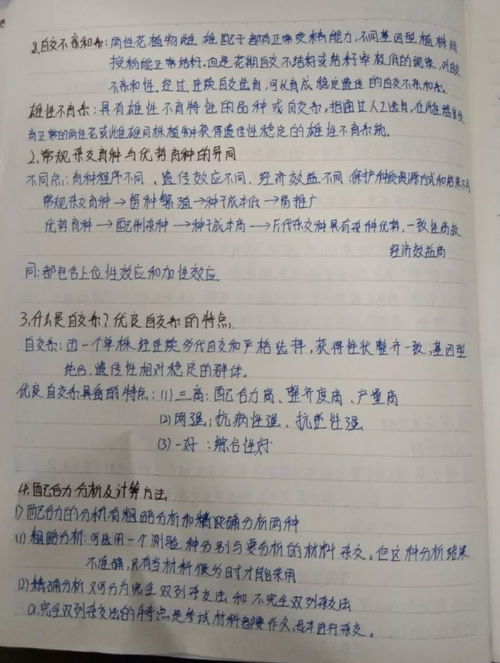 8.自交不亲和系:两性花植物雌雄配子都有正常受精能力,不同基因型植株间
授粉能正常结籽,但是花期自交不结籽或结籽率极低的现象,叫自交
不亲和性,经过连续自交选育,可以育成稳定遗传的自交不亲和系。
雄性不育系:具有雄性不育特性的品种或自交系,把通过人工选育,在此
有正常的两性花或此雄雄同株植物中获得遗传性稳定的雄性不育系统。
2.常规杂交育种与优势育种的异同
不同点:育种程序不同,遗传效应不同,经济效益不同,保护种质资源方式和结果不同
常规杂交育种→留种繁殖→种子成本低→易推广
优势育种→配制杂种→种子成本高→F1代杂交种具有杂种优势,一致性高
经济效益高
同:都包含上位性效应和加性效应
3.什么是自交系?优良自交系的特点
自交系:由一个单株经连续多代自交和严格选择,获得性状整齐一致,基因型
纯合,遗传性相对稳定的群体。
优良自交系具备的特点:(1)三高:配合力高、整齐度高、产量高
(2)两强:抗病性强、抗逆性强
(3)一好:综合性好
4.配合力分析及计算方法
1)配合力的分析有粗略分析和精确分析两种
(1)粗略分析:可选用一个测验种分别与要分析的材料杂交。但这种分析结果
不准确,只有当材料很多时才能采用
(2)精确分析又可分为完全双列杂交法和不完全双列杂交法
a.完全双列杂交法的特点是参试材料都要作父、母本进行杂交。